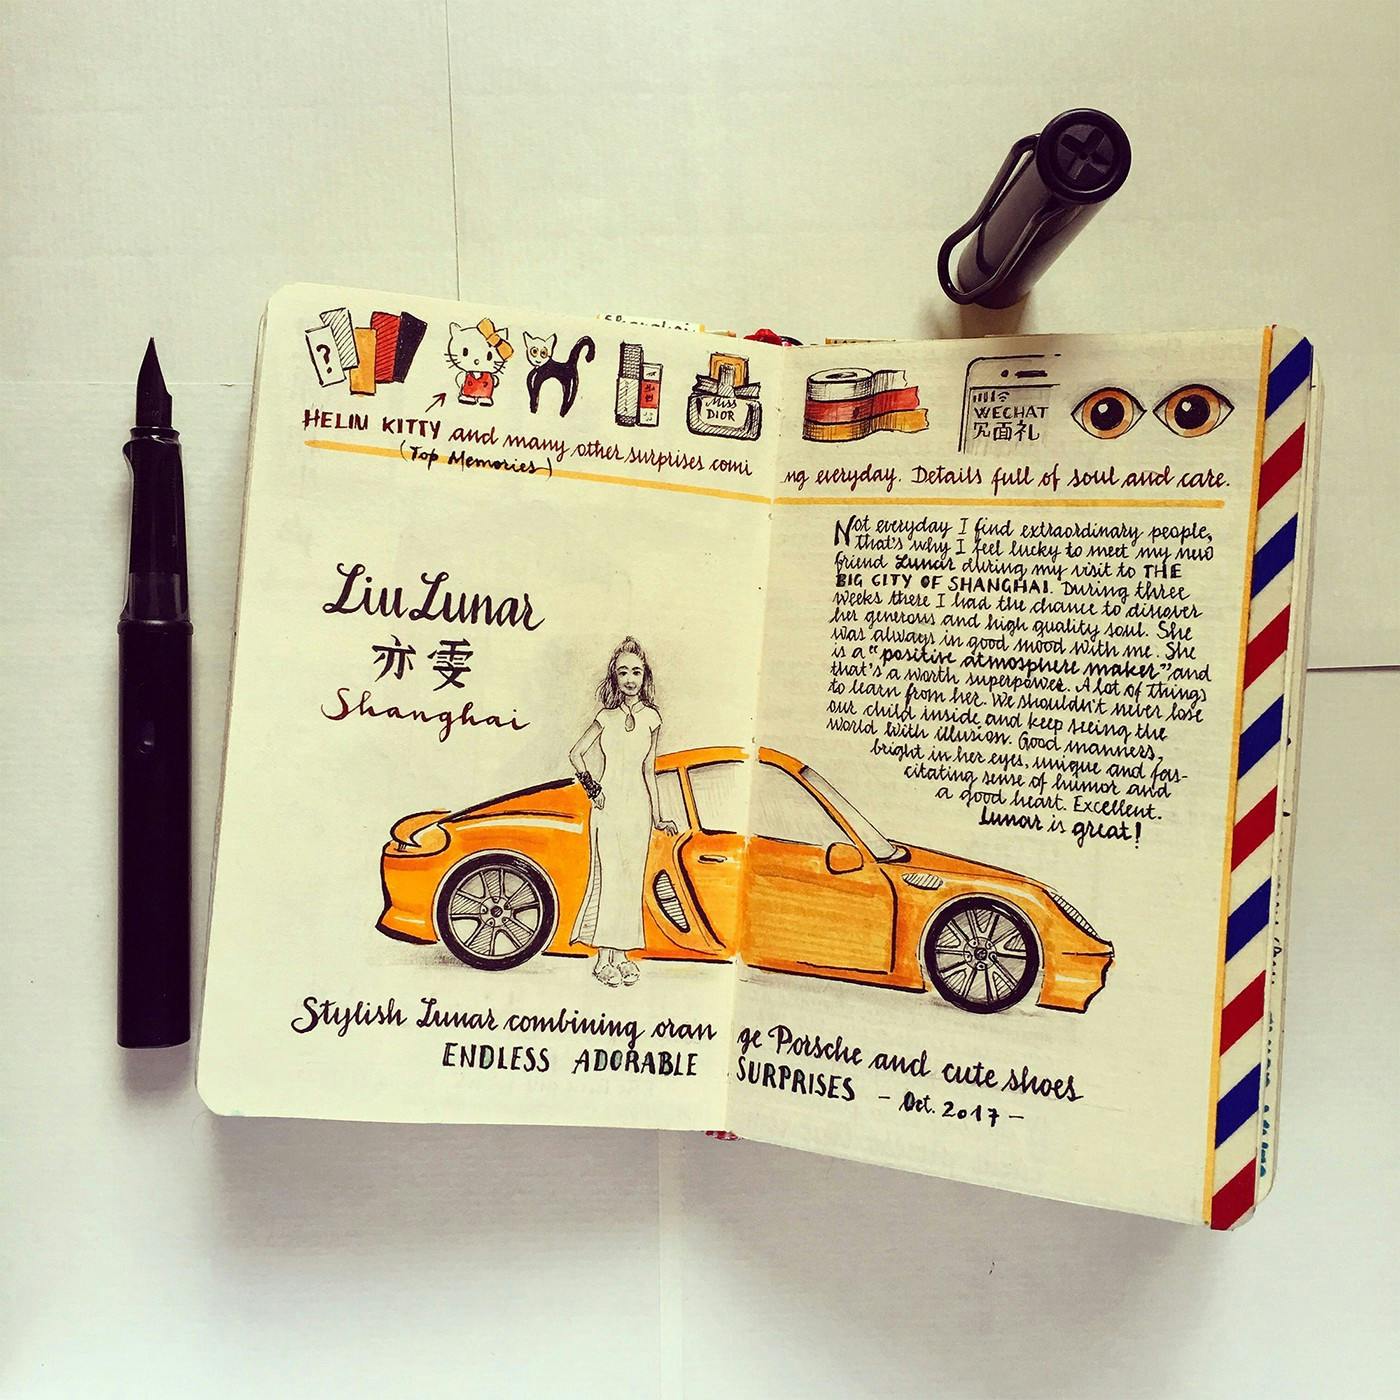 Shanghai
?
Miss
DIOR
WECHAT
冗面礼
HELLN KITTY and many other surprises comi
(Top Memories)
ng everyday. Details full of soul and care.
Liu Lunar
亦雯
Shanghai
Not everyday I find extraordinary people,
that's why I feel lucky to meet my new
friend Lunar during my visit to THE
BIG CITY OF SHANGHAI. During three
weeks there I had the chance to discover
her generous and high quality soul. She
was always in good mood with me. She
is a "positive atmosphere maker" and
that's a worth superpower. A lot of things
to learn from her. We shouldn't never lose
our child inside and keep seeing the
world with illusion. Good manners,
bright in her eyes, unique and fas-
citating sense of humor and
a good heart. Excellent.
Lunar is great!
Stylish Lunar combining oran ge Porsche and cute shoes
ENDLESS ADORABLE SURPRISES - Oct. 2017 -